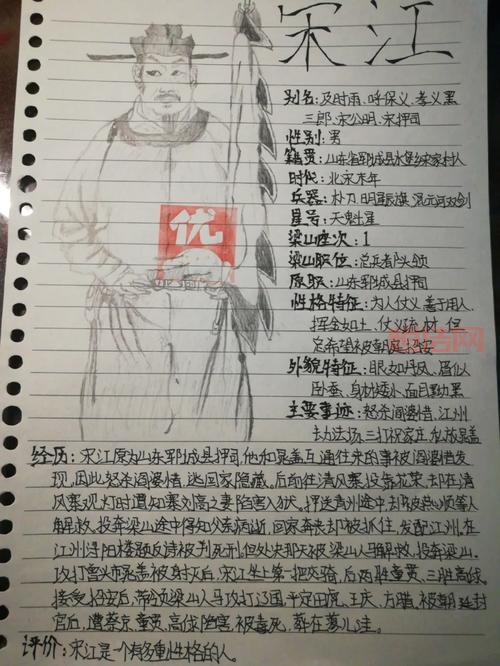 宋江
别名:及时雨、呼保义、孝义黑
三郎、宋公明、宋押司
性别:男
籍贯:山东省郓城县水堡乡宋家村人
时代:北宋末年
兵器:朴刀 明星辰旗 混元河双剑
星号:天魁星
梁山座次:1
梁山职位:总兵都头领
原职:山东郓城县押司
性格特征:为人仗义 善于用人
挥金如土、仗义疏财,但
总希望被朝廷招安
外貌特征:眼如丹凤、眉似
卧蚕、身材矮小、面目黝黑
主要事迹:怒杀阎婆惜、江州
劫法场、三打祝家庄、私放晁盖
经历:宋江原为山东郓城县押司,他和晁盖互通往来的事被阎婆惜发
现,因此怒杀阎婆惜,逃回家隐藏,后前往清风寨投靠花荣,却在清
风寨观灯时遭知寨刘高之妻陷害入狱。押送青州途中却被燕顺等人
解救。投奔梁山途中得知父亲病逝,回家奔丧却被抓住,发配江州。在
江州浔阳楼题反诗被判死刑,但处决那天被梁山人马解救,投奔梁山。
攻打曾头市晁盖被身灭后,宋江坐上第一把交骑,后两胜童贯,三胜高俅。
接受招安后,带领梁山人马攻打辽国,平定田虎、王庆、方腊,被朝廷封
官后,遭蔡京、童贯、高俅陷害,被毒死,葬在蓼儿洼。
评价:宋江是一个有多重性格的人。
优